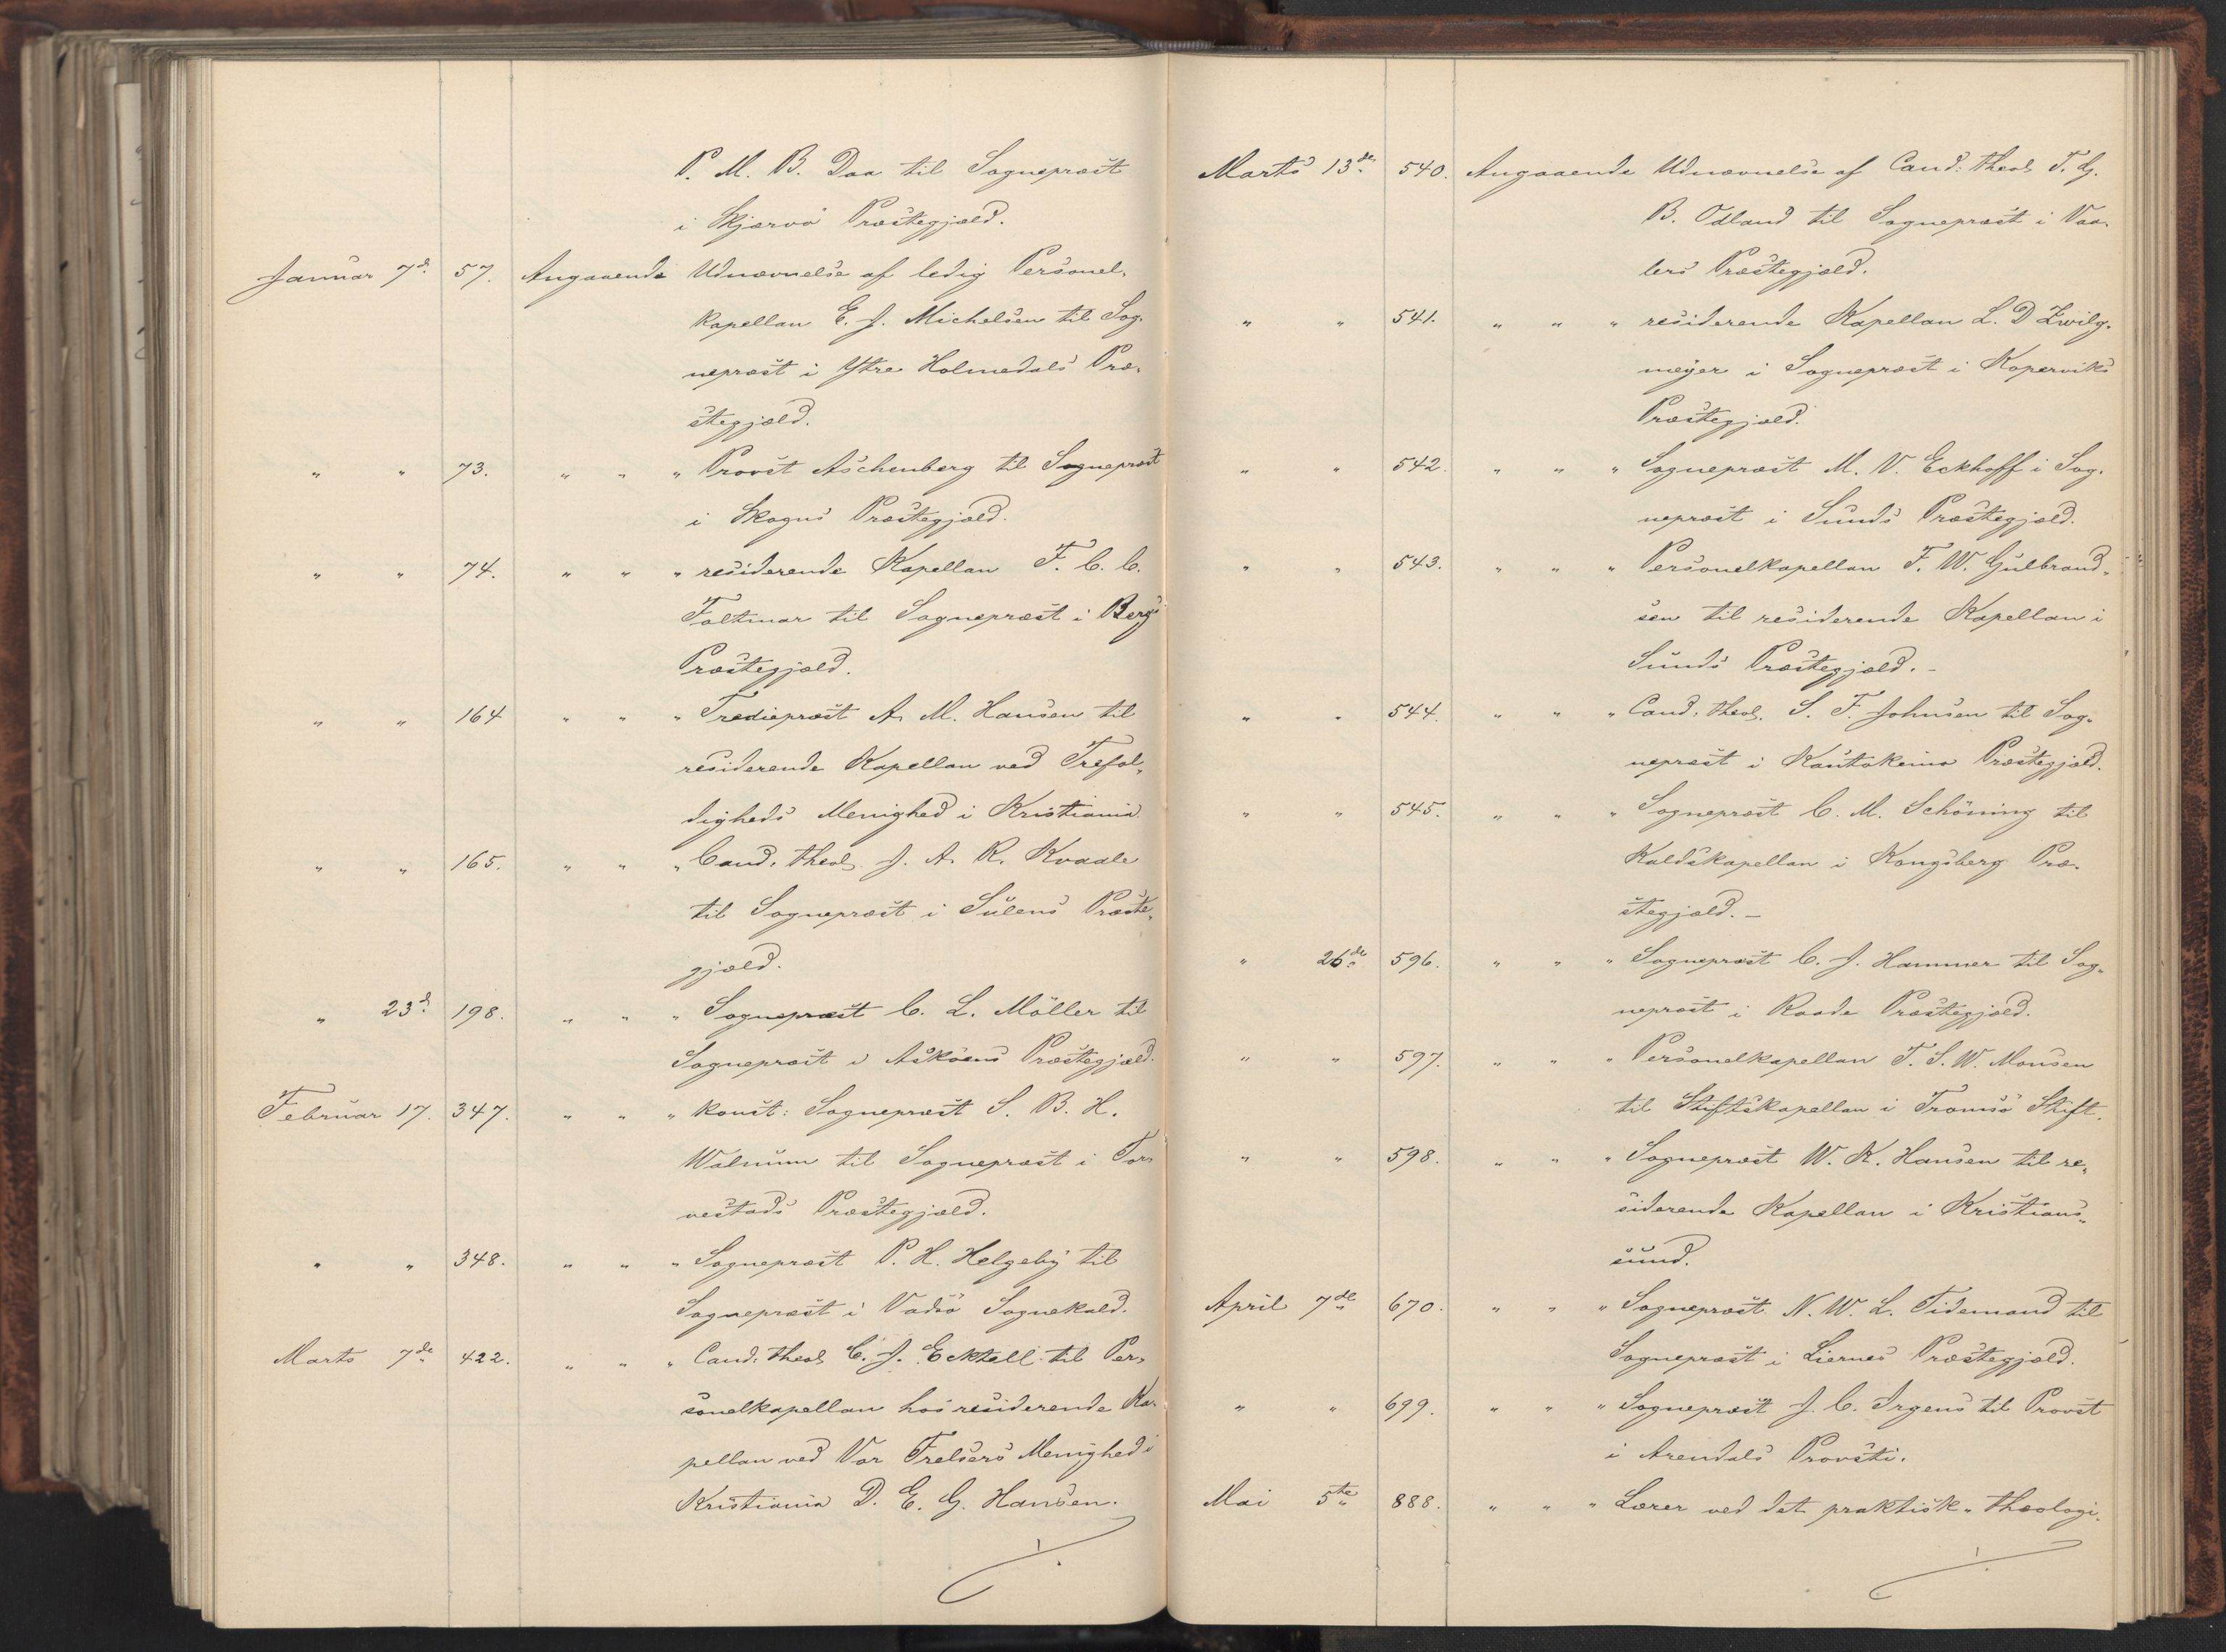 P. M. B. Daa til Sognepræst
i Skjærvö Præstegjæld.
Januar 7d. 57. Angaaende Udnævnelse af ledig Personel-
kapellan E. J. Michelsen til Sog-
nepræst i Ytre Holmedals Præ-
stegjæld.
" " 73. " " " Provst Aschenberg til Sognepræst
i Skogns Præstegjæld.
" " 74. " " " residerende Kapellan F. C. C.
Faltmar til Sognepræst i Bergs
Præstegjæld.
" " 164 " " " Trediepræst A. M. Hansen til
residerende Kapellan ved Trefol-
digheds Menighed i Kristiania
" " 165. " " " Cand. theol. J. A. R. Kvaale
til Sognepræst i Sulens Præste-
gjæld.
" 23d. 198. " " " Sognepræst C. L. Möller til
Sognepræst i Asköens Præstegjæld.
Februar 17. 347. " " " konst: Sognepræst S. B. H.
Walnum til Sognepræst i Tor-
vestads Præstegjæld.
" " 348. " " " Sognepræst P. H. Helgeby til
Sognepræst i Vadsö Sognekald.
Marts 7de 422. " " " Cand. theol C. J. Ecktell til Per-
sonelkapellan hos residerende Ka-
pellan ved Vor Frelsers Menighed i
Kristiania D. E. G. Hansen.
Marts 13de 540. Angaaende Udnævnelse af Cand. theol. T. G.
B. Odland til Sognepræst i Vaa-
lers Præstegjæld.
" " 541. " " " residerende Kapellan L. D Zwilg-
meyer i Sognepræst i Koperviks
Præstegjæld.
" " 542. " " " Sognepræst M. V. Eckhoff i Sog-
nepræst i Sunds Præstegjæld.
" " 543. " " " Personelkapellan F. W. Gulbrand-
sen til residerende Kapellan i
Sunds Præstegjæld. -
" " 544. " " " Cand. theol. S. F. Johnsen til Sog-
nepræst i Kautokeino Præstegjæld.
" " 545. " " " Sognepræst C. M. Schöning til
Kaldskapellan i Kongsberg Præ-
stegjæld. -
" 26de 596. " " " Sognepræst C. J. Hammer til Sog-
nepræst i Raade Præstegjæld.
" " 597. " " " Personelkapellan T. S. W. Monsen
til Stiftskapellan i Tromsö Stift.
" " 598. " " " Sognepræst W. K. Hansen til re-
siderende Kapellan i Kristians-
sund.
April 7de 670. " " " Sognepræst N. W. L. Tidemand til
Sognepræst i Liernes Præstegjæld.
" " 699. " " " Sognepræst J. C. Irgens til Provst
i Arendals Provsti.
Mai 5te 888. " " " Lærer ved det praktisk-theologi-